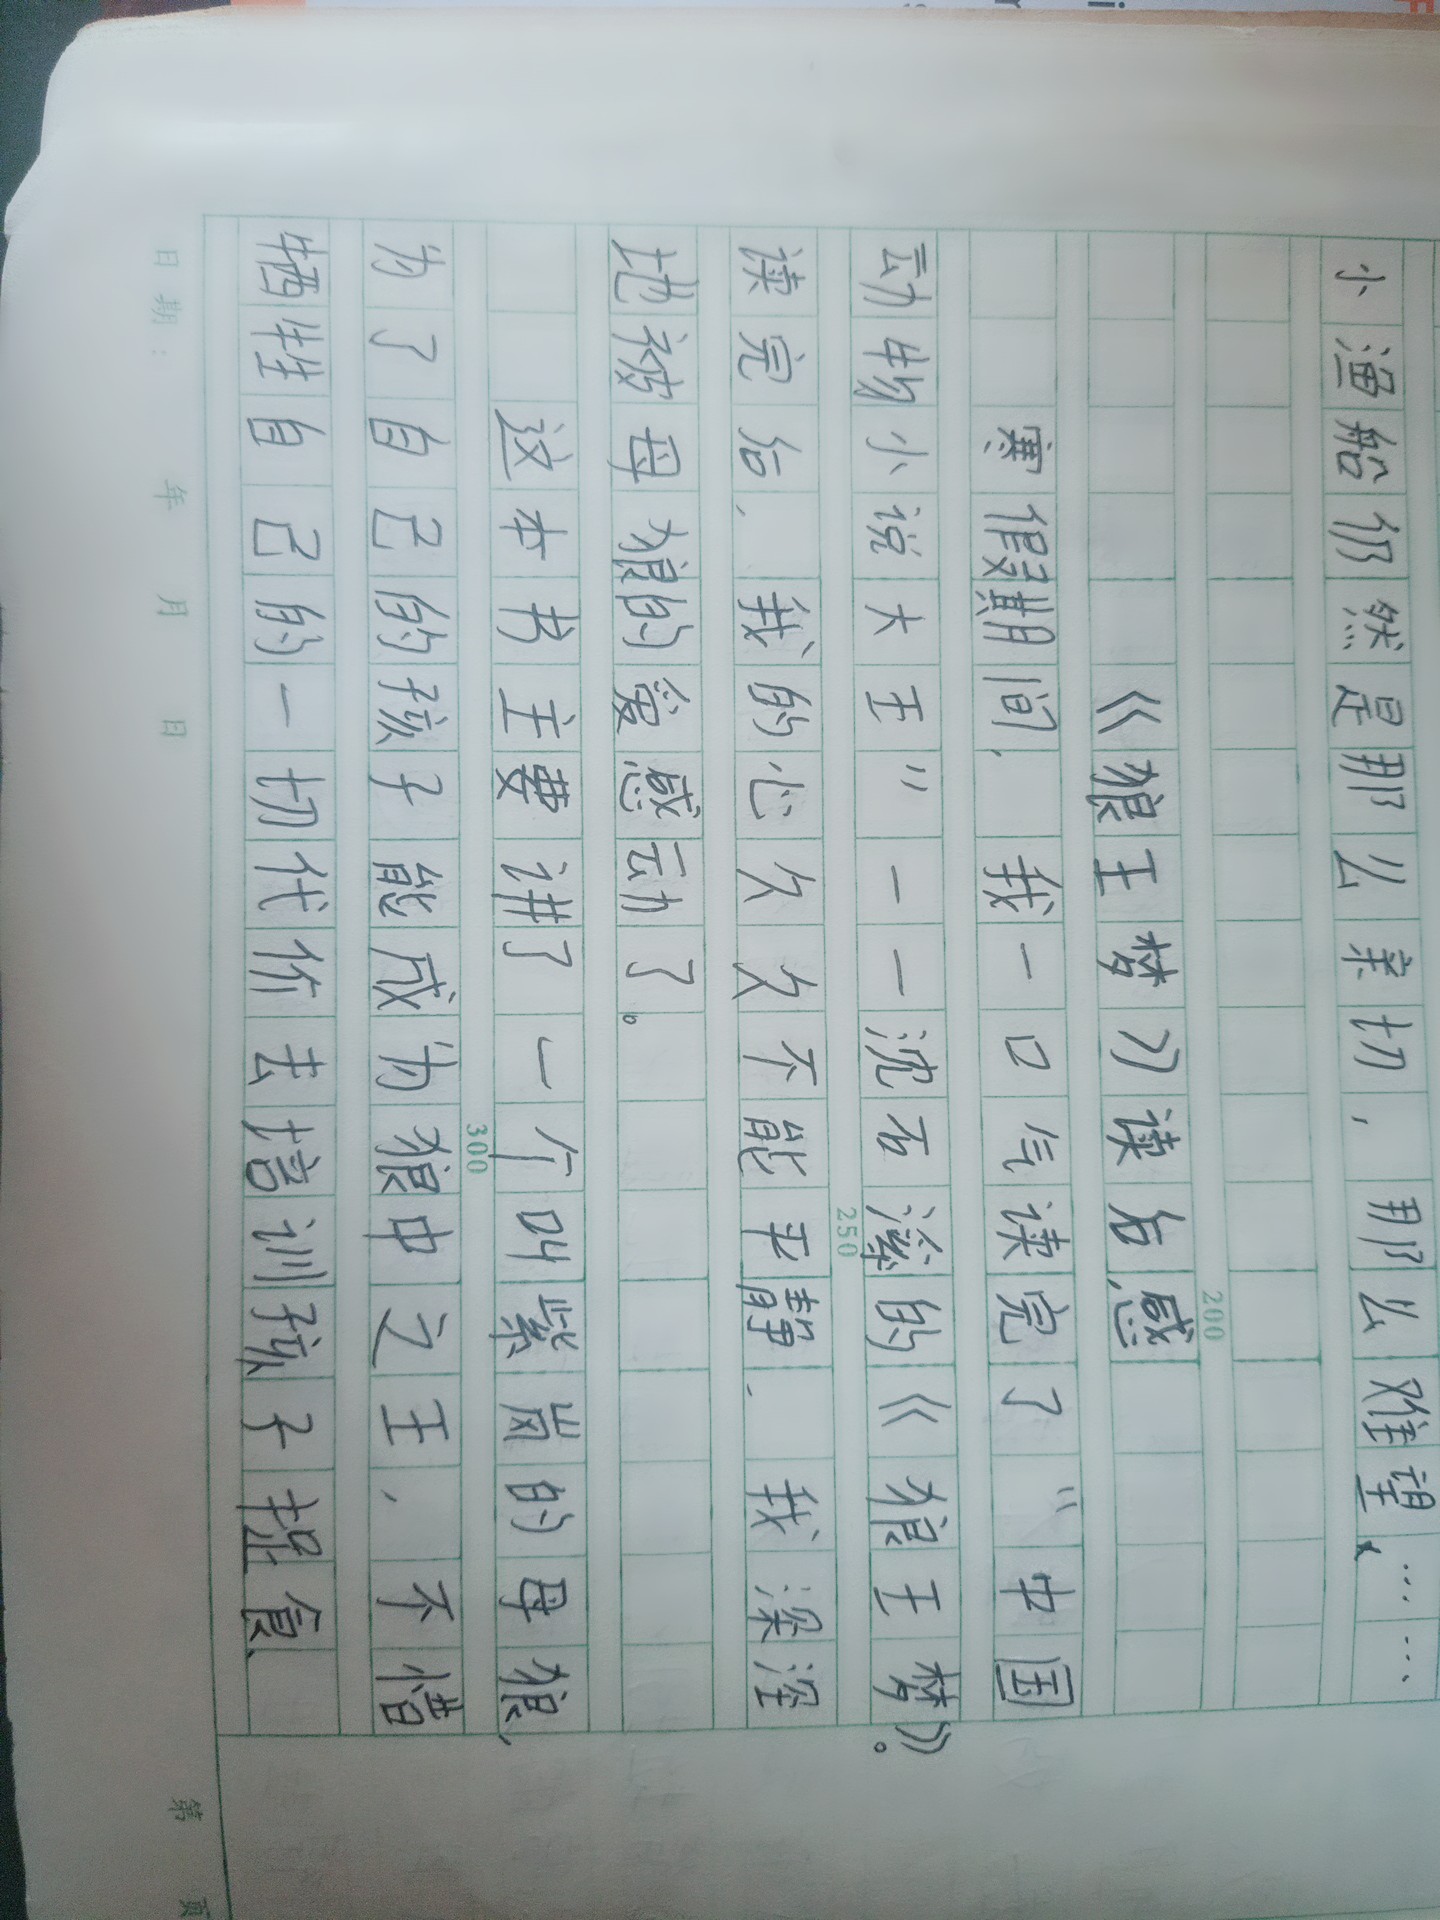 小渔船仍然是那么亲切，那么难望……
200
《狼王梦》读后感
寒假期间，我一口气读完了“中国
动物小说大王”——沈石溪的《狼王梦》。
250
读完后，我的心久久不能平静，我深深
地被母狼的爱感动了。
这本书主要讲了一个叫紫岚的母狼，
300
为了自己的孩子能成为狼中之王，不惜
牺牲自己的一切代价去培训孩子捉食、
日期： 年 月 日 第 页